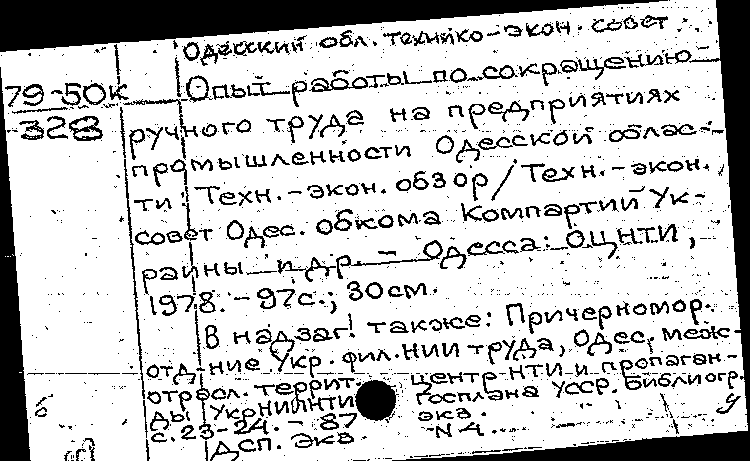 Одесский обл. технико-экон. совет
79-50к Опыт работы по сокращению
-328 ручного труда на предприятиях
промышленности Одесской облас-
ти: Техн.-экон. обзор / Техн.-экон.
совет Одес. обкома Компартии Ук-
раины и др. - Одесса: ОЦНТИ,
1978. - 97с.; 30см.
В надзаг. также: Причерномор.
отд-ние Укр. фил. НИИ труда, Одес. меж-
отрасл. террит. центр НТИ и пропаган-
ды УкрНИИНТИ Госплана УССР. Библиогр.
с. 23-24. - 87 экз.
ДСП. Экз. N 4.
б у